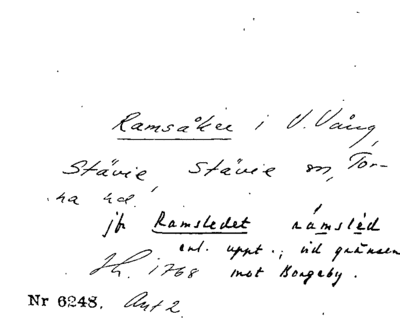 Ramsåker i V. Vång,
Stävie, Stävie sn, Tor-
na hd.
jfr Ramsledet ràmsléd
enl. uppt., vid gränsen
Jh. 1768 mot Borgeby.
Nr 6248. Ant 2